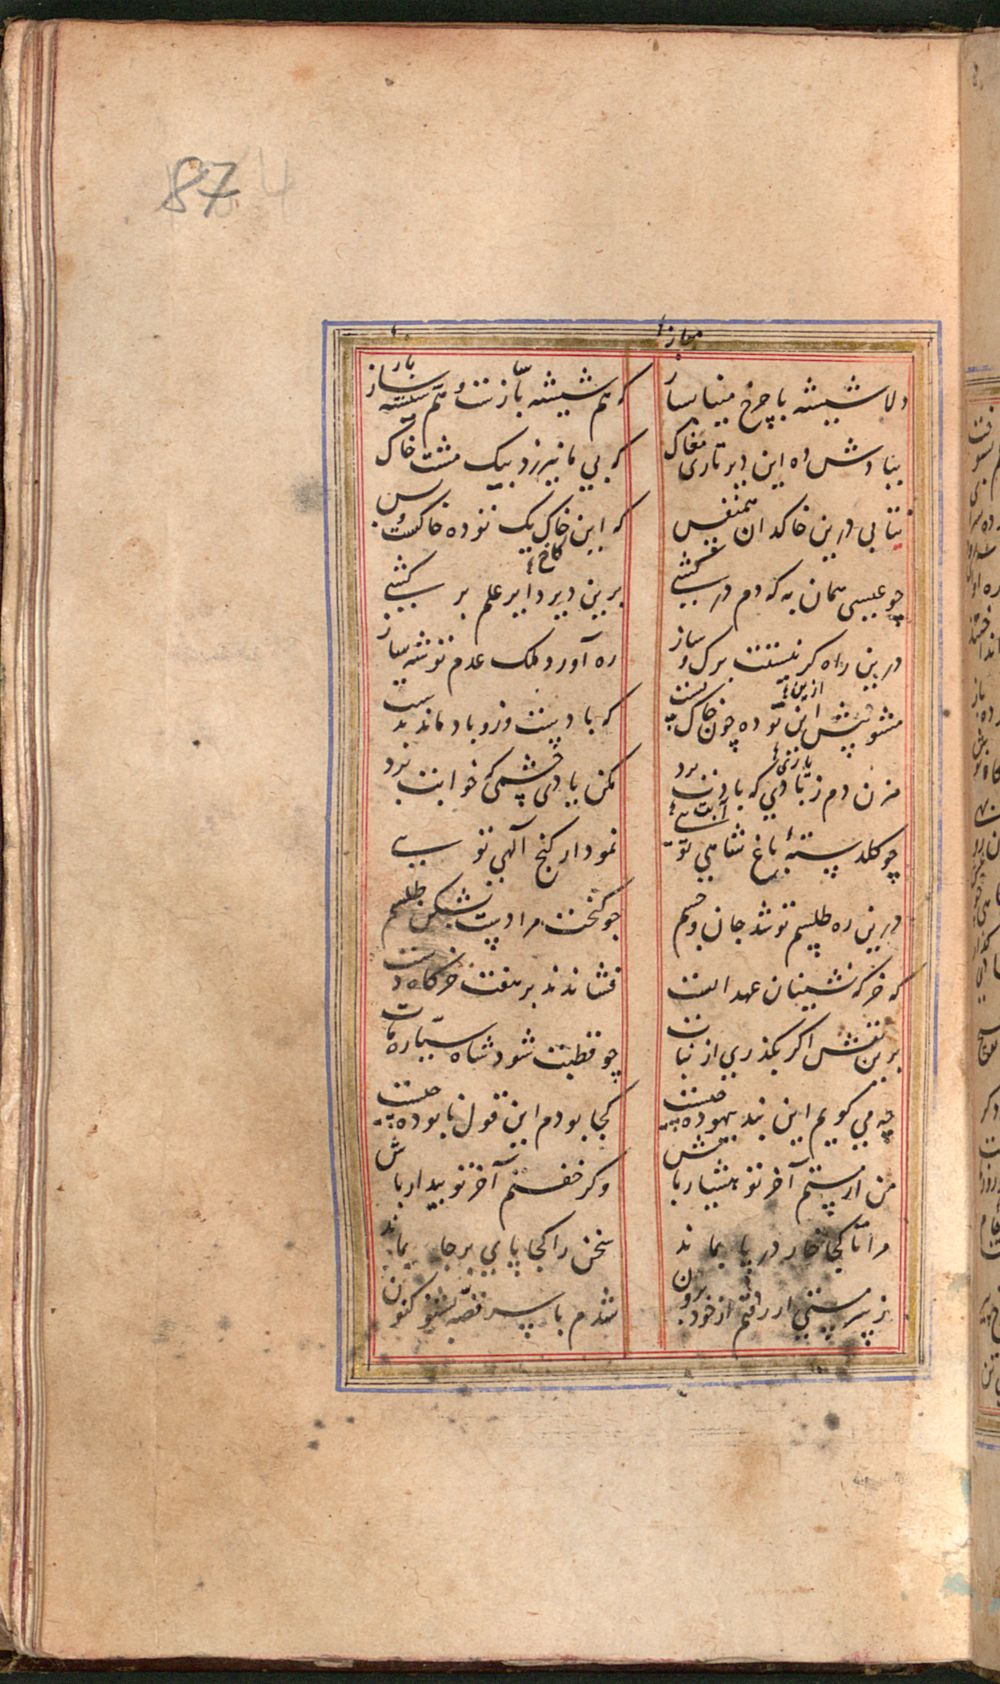 87
مباز
دلا شیشه با چرخ مینا مساز
که هم شیشه بازست و هم شیشه باز
بنا دش ده این دیر تاری مغاک
که بی ما نیرزد بیک مشت خاک
نتابی درین خاکدان همنفس
که این خاک یک توده خاکست و بس
چو عیسی همان به که دم در کشی
برین دیر دایر علم بر کشی
کاخ
درین راه گر نیستت برگ و ساز
ره آورد ملک عدم توشه ساز
ازین
مشو پیش این توده چون خاک پست
که بادیست وزو باد ماند بدست
بازی
مزن دم ز بادی که بادت برد
مکن یاد چشمی که خوابت برد
آبت
چو گلدسته باغ شاهی تویی
نمودار گنج الهی تویی
درین ره طلسم تو شد جان و جسم
چو گنجت مرادست بشکن طلسم
که خرگه نشینان عهد الست
فشاندند بر هفت خرگاه دست
برین نقش اگر بگذری از نبات
چو قطبت شود شاه سیاره مات
چه می گویم این پند بیهوده چیست
کجا بودم این قول نابوده چیست
من ار مستم آخر تو هشیار باش
وگر خفتم آخر تو بیدار باش
مرا تا کجا خار در پا بماند
سخن را کجا پای بر جا بماند
ز سرمستی ار رفتم از خود برون
شدم با سر قصه بشنو کنون